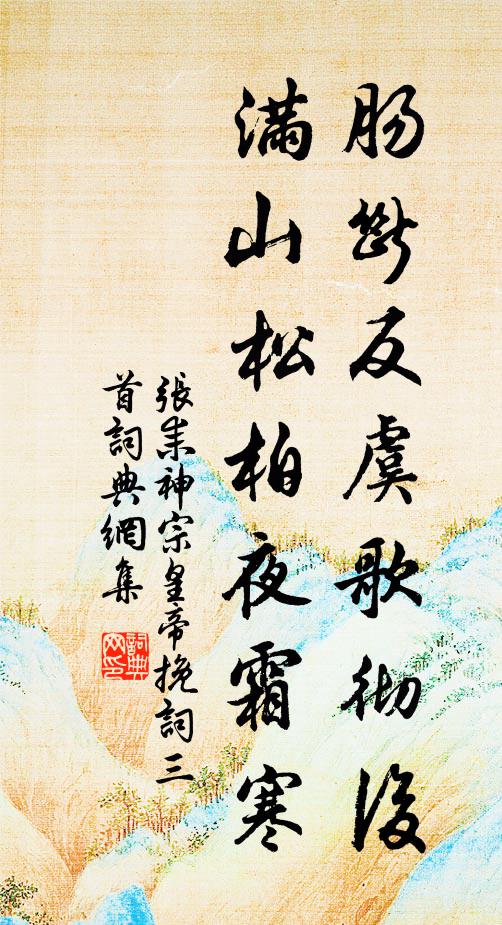 腸斷反虞歌徹後
滿山松柏夜霜寒
張耒神宗皇帝挽詞三
首詞典網集
詞典
网印